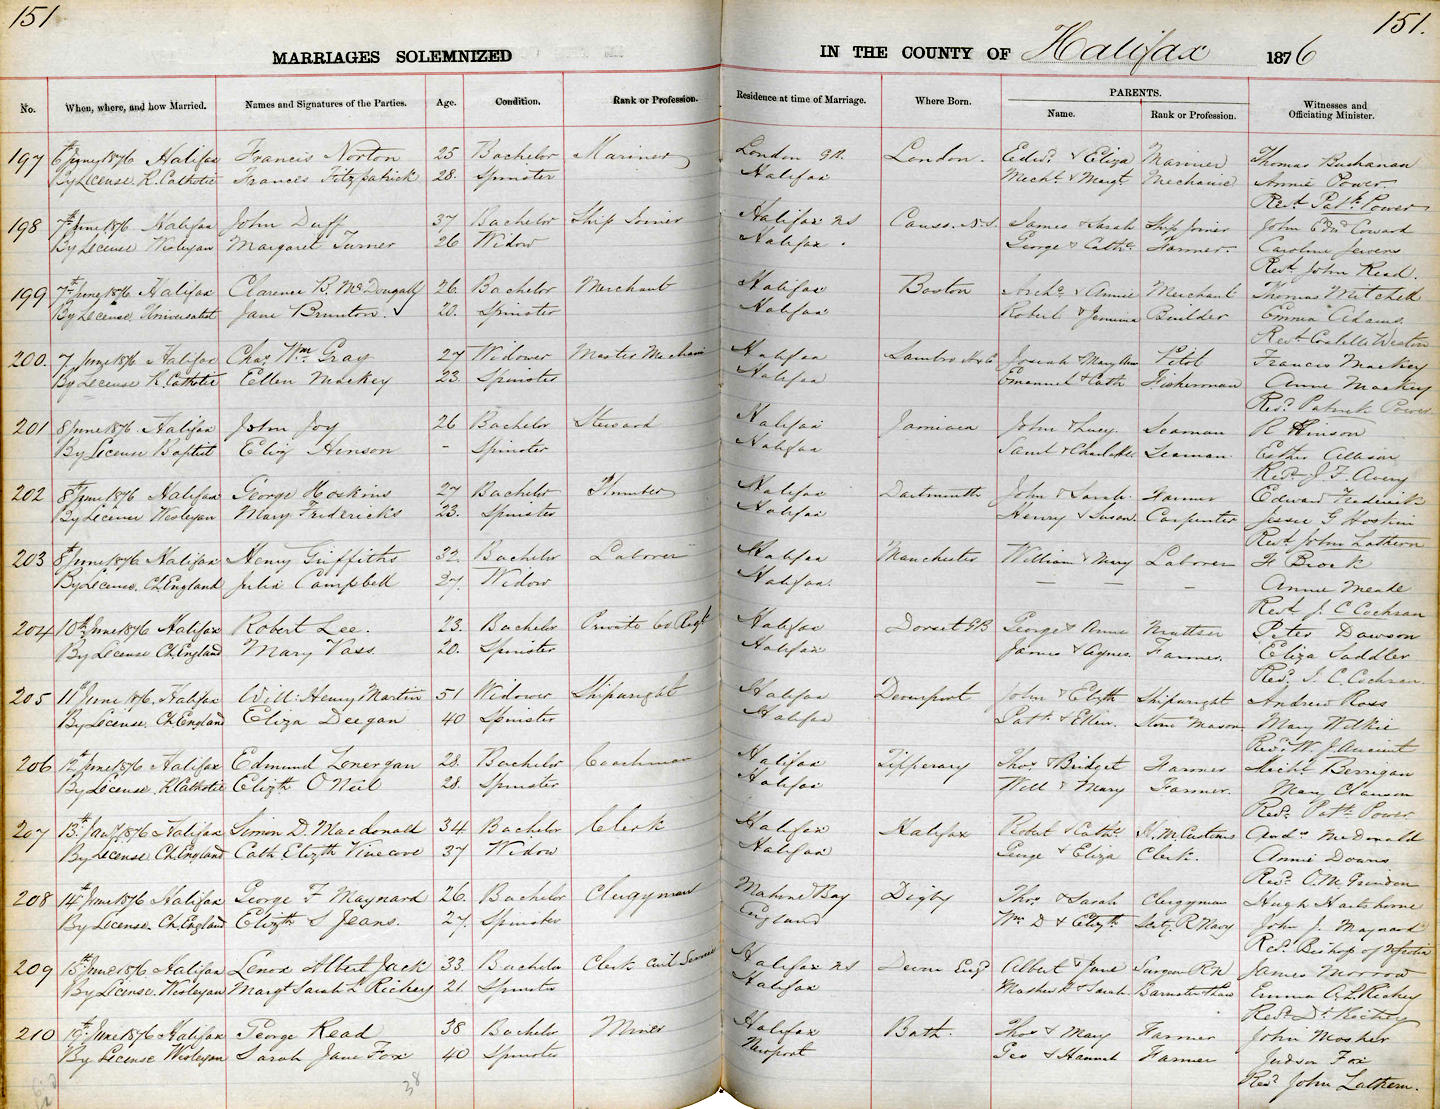 151
151.
MARRIAGES SOLEMNIZED IN THE COUNTY OF Halifax 1876
PARENTS.
No. When, where, and how Married. Names and Signatures of the Parties. Age. Condition. Rank or Profession. Residence at time of Marriage. Where Born. Name. Rank or Profession. Witnesses and Officiating Minister.
197 6th June 1876 Halifax Francis Norton 25 Bachelor Mariner London GB. London. Edwd & Eliza Mariner Thomas Buchanan
By License R. Catholic Frances Fitzpatrick 28. Spinster Halifax Michl & Margt Mechanic Annie Power.
Revd Patk Power
198 7th June 1876 Halifax John Duff 37 Bachelor Ship Joiner Halifax NS Canso. N.S. James & Sarah Ship Joiner John Edwd Coward
By License Wesleyan Margaret Turner 26 Widow Halifax. George & Cathe Farmer. Caroline Jewens
Revd John Read.
199 7th June 1876 Halifax Clarence B. McDougall 26. Bachelor Merchant Halifax Boston Archd & Annie Merchant Thomas Mitchell
By License Universalist Jane Brunton. 20. Spinster Halifax Robert & Jemima Builder Emma Adams.
Revd Costello Weston
200. 7 June 1876 Halifax Chas Wm Gray 27 Widower Master Mechanic Halifax Sambro Josiah & Mary Ann Pilot Francis Mackey
By License R. Catholic Ellen Mackey 23. Spinster Halifax Emanuel & Cath Fisherman Anne Mackey
Revd Patrick Power
201 8 June 1876 Halifax John Joy 26 Bachelor Steward Halifax Jamiaca John & Lucy. Seaman R Hinson
By License Baptist Eliz Henson - Spinster Halifax Saml & Charlotte Seaman Esther Allison
Revd J. F. Avery
202 8th June 1876 Halifax George Hoskins 27 Bachelor Plumber Halifax Dartmouth John & Sarah Farmer Edward Frederick
By License Wesleyan Mary Fridericks 23. Spinster Halifax Henry & Susan. Carpenter Jessie G Hoskin
Revd John Lathern
203 8th June 1876 Halifax Henry Griffiths 32. Bachelor Laborer Halifax Manchester William & Mary Laborer F Brock
By License. Ch. England Julia Campbell 27. Widow Halifax. — — - Annie Meale
Revd J. C Cochran
204 10th June 1876 Halifax Robert Lee. 23. Bachelor Private 60 Regt Halifax Dorset GB George & Anne Peter Dawson
By License Ch. England Mary Vass. 20. Spinster Halifax James & Agnes. Farmer. Eliza Saddler
Revd J. C Cochran.
205 11th June 1876. Halifax Will: Henry Martin 51 Widower Shipwright Halifax Devonport John & Elizth Shipwright Andrew Ross
By License. Ch. England Eliza Deegan 40 Spinster Halifax Patk & Ellen. Stone Mason Mary Wilkie
Revd W. J. Ancient
206 12th June 1876 Halifax Edmund Lonergan 28. Bachelor Coachman Halifax Tipperary Thos & Bridget Farmer Michl Berrigan
By License. R. Catholic Elizth O'Neil 28. Spinster Halifax Will & Mary Farmer. Mary Clauson
Revd Patk Power
207 13th Jany 1876 Halifax Simon D. Macdonald 34 Bachelor Clerk Halifax Halifax Robert & Cathe H. M Customs Andw McDonald
By License Ch. England Cath Elizth Vinecove 37 Widow Halifax George & Eliza Clerk. Annie Doans
Revd O. M. Grindon
208 14th June 1876 Halifax George F Maynard 26. Bachelor Clergyman Mahone Bay Digby Thos & Sarah Clergyman Hugh Hartshorne
By License. Ch. England Elizth S Jeans. 27. Spinster England Wm D & Elizth R Navy John J. Maynard
Revd Bishop of N Scotia
209 15th June 1876 Halifax Lenox Albert Jack 33. Bachelor Clerk Civil Service Halifax NS Devon Engd Albert & Jane Surgeon R N James Morrow
By License. Wesleyan Margt Sarah L Richey 21. Spinster Halifax Mathew & Sarah. Barrister Emma A. L. Richey
Revd Dr Richey
210 19th June 1876 Halifax George Read 38 Bachelor Miner Halifax Bath. Thos & Mary Farmer John Mosher
By License Wesleyan Sarah Jane Fox 40 Spinster Newport Geo & Hannah Farmer Judson Fox
Revd John Lathern.
38